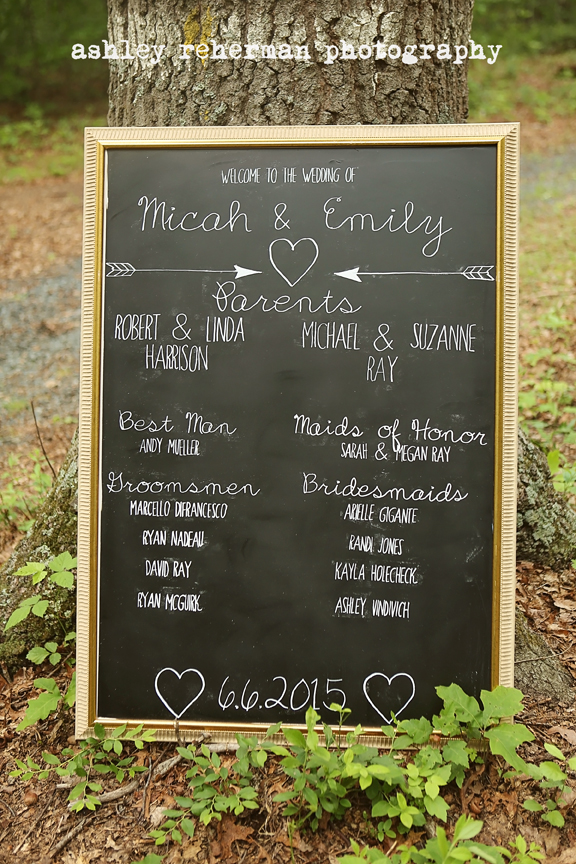 ashley reherman photography
WELCOME TO THE WEDDING OF
Micah & Emily
Parents
ROBERT & LINDA
HARRISON
MICHAEL & SUZANNE
RAY
Best Man
ANDY MUELLER
Maids of Honor
SARAH & MEGAN RAY
Groomsmen
MARCELLO DIFRANCESCO
RYAN NADEAU
DAVID RAY
RYAN MCGUIRK
Bridesmaids
ARIELLE GIGANTE
RANDI JONES
KAYLA HOLECHECK
ASHLEY VINDIVICH
6.6.2015